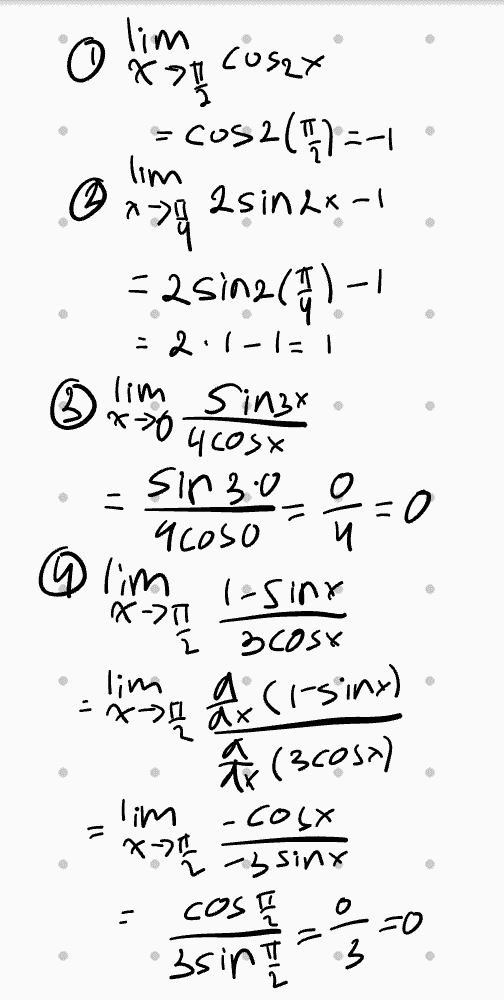 ① lim x→π/2 cos2x
= cos2(π/2) = -1
② lim x→π/4 2sin2x - 1
= 2sin2(π/4) - 1
= 2·1 - 1 = 1
③ lim x→0 sin3x / 4cosx
= sin3·0 / 4cos0 = 0/4 = 0
④ lim x→π/2 1-sinx / 3cosx
= lim x→π/2 d/dx (1-sinx) / d/dx (3cosx)
= lim x→π/2 -cosx / -3sinx
= cos π/2 / 3sin π/2 = 0/3 = 0